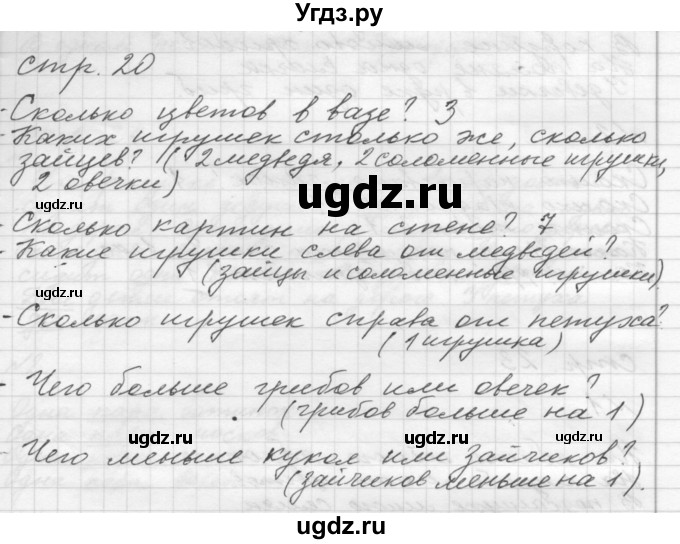 Угдз.ру
стр. 20
- Сколько цветов в вазе? 3
- Каких игрушек столько же, сколько
зайцев? (2 медведя, 2 соломенные игрушки,
2 овечки)
ugdz.ru
ugdz.ru
- Сколько картин на стене? 7
- Какие игрушки слева от медведей?
(зайцы и соломенные игрушки)
ugdz.ru
ugdz.ru
- Сколько игрушек справа от петуха?
(1 игрушка)
ugdz.ru
- Чего больше грибов или овечек?
(грибов больше на 1)
ugdz.ru
ugdz.ru
- Чего меньше кукол или зайчиков?
(зайчиков меньше на 1).
ugdz.ru
ugdz.ru